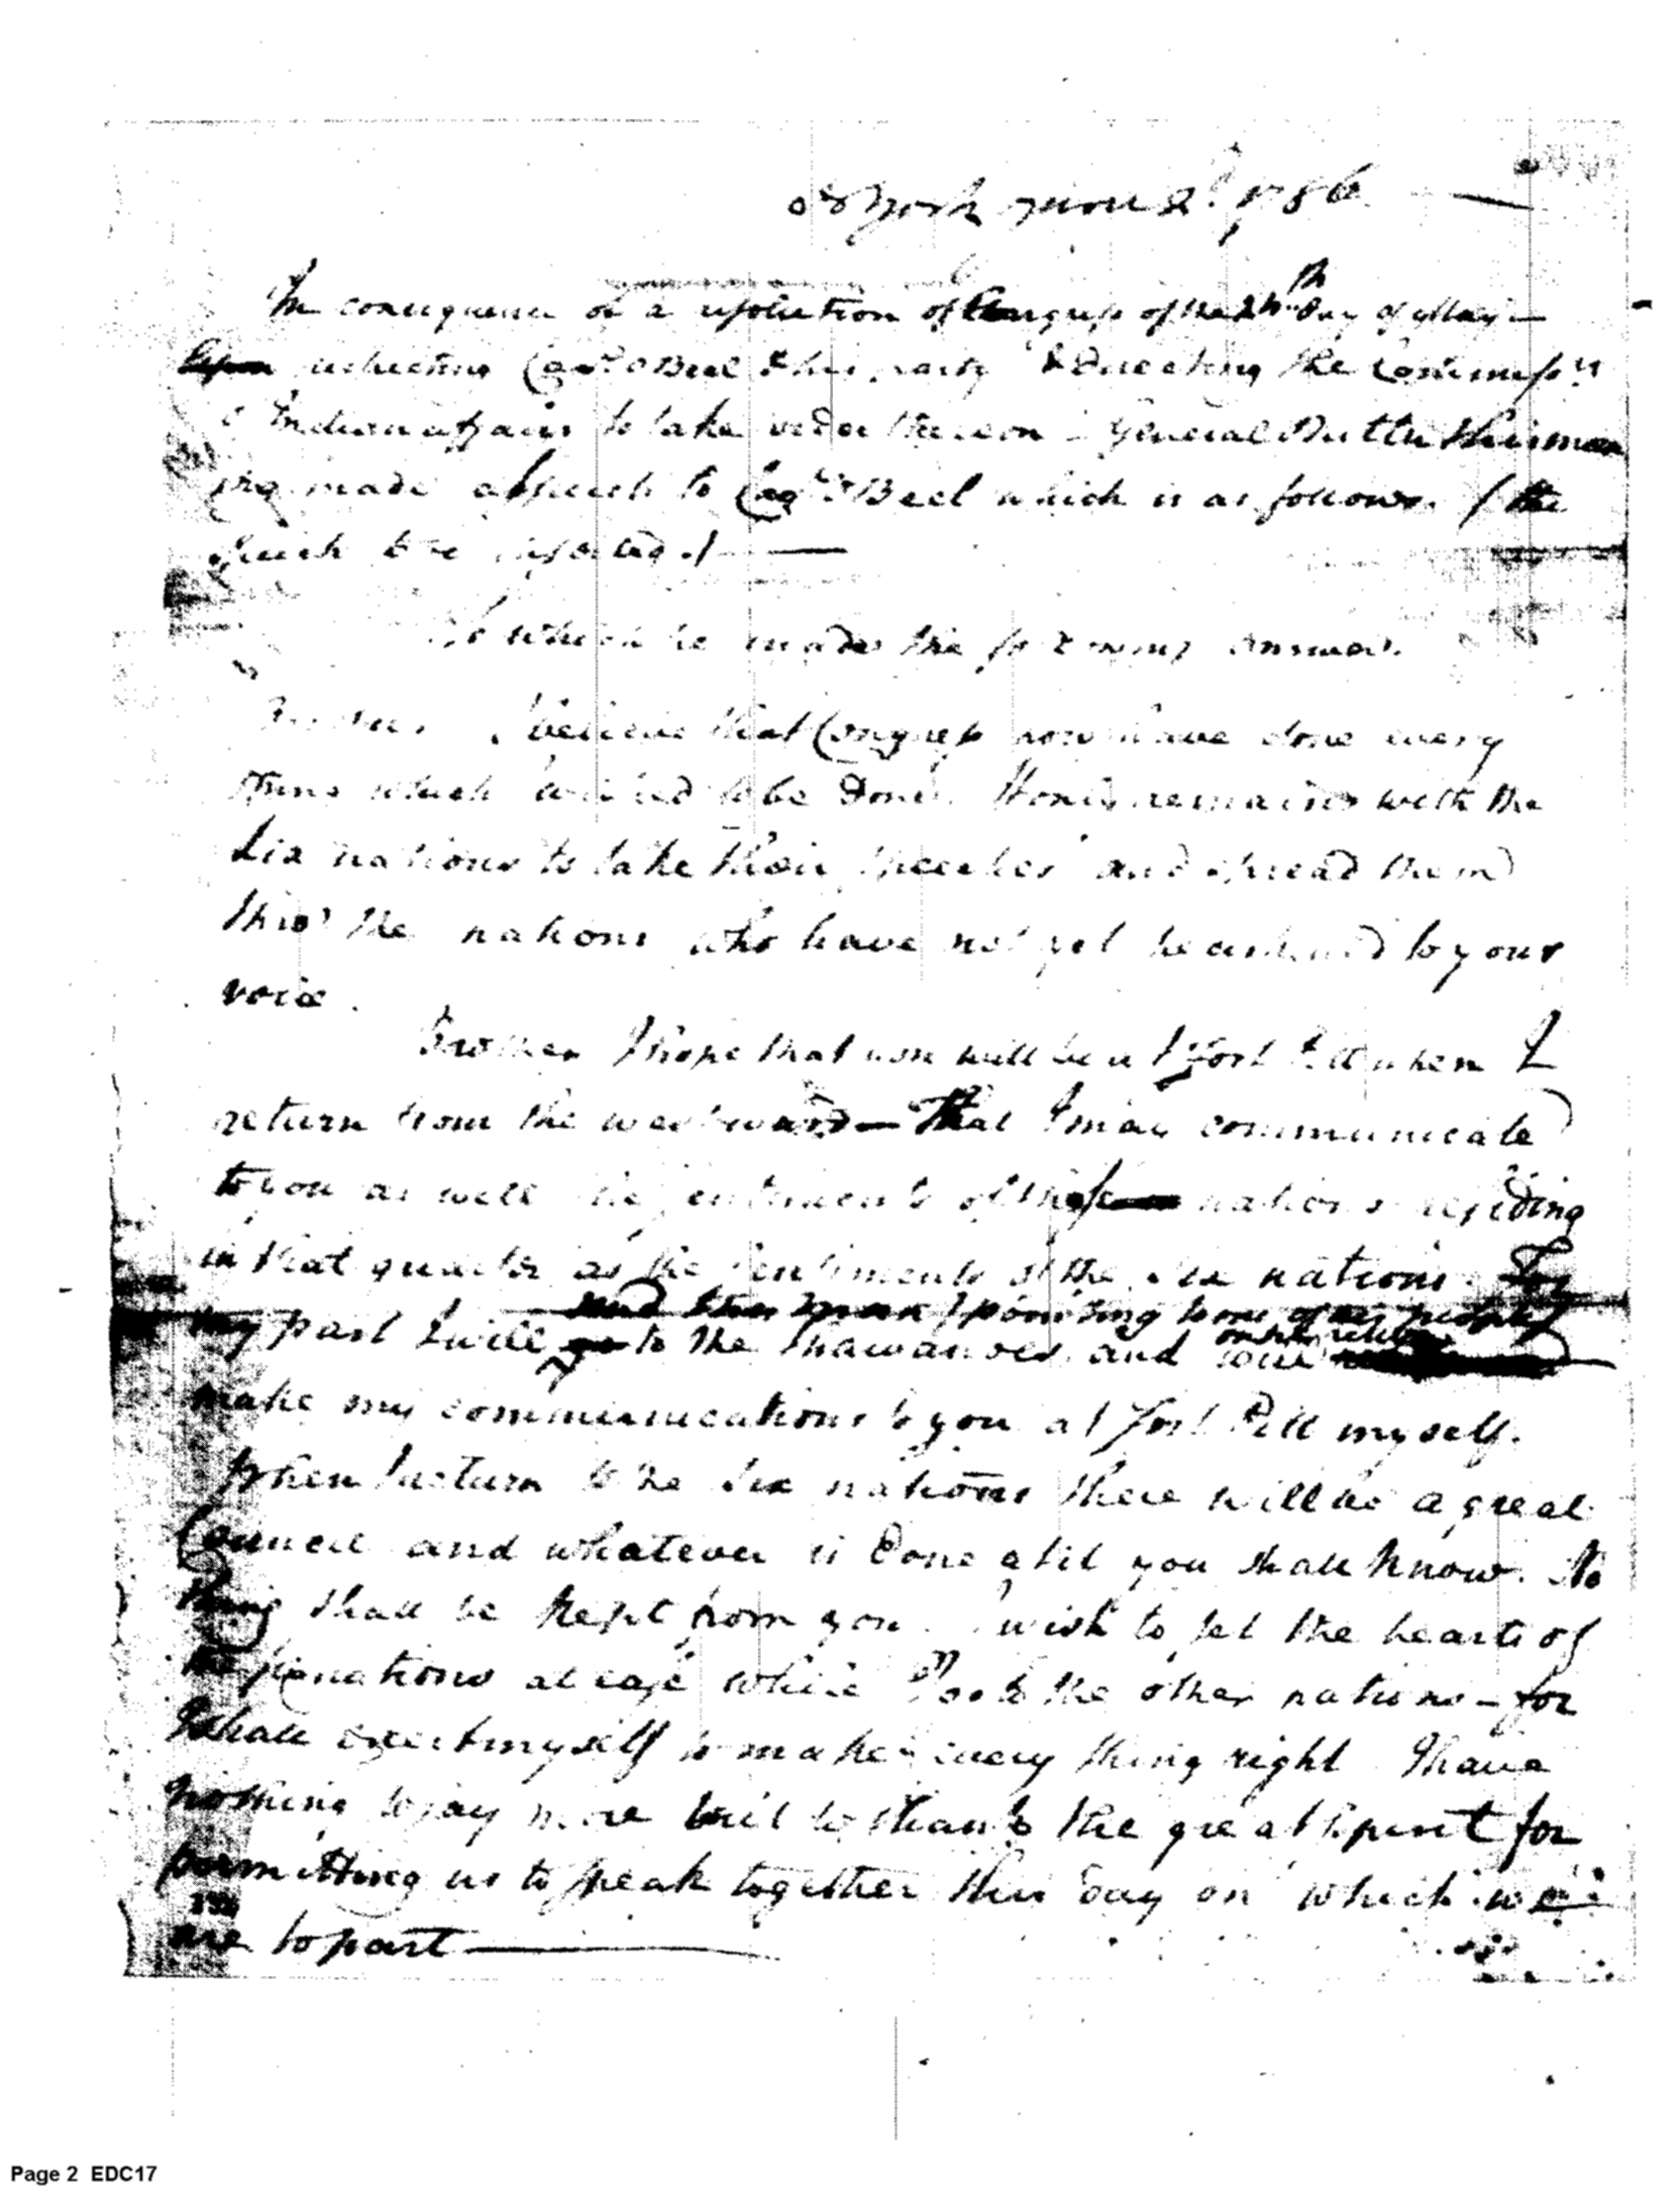 York June 2d. 1786
In consequence of a resolution of Congress of the 24th. day of May —
respecting Capt. OBeel & his party & directing the Commissrs
Indian affairs to take order thereon General Butler
made a speech to Capt OBeel which is as follows. / the
speech to be inserted ./ —
To which he made the following answer.
Brother I believe that Congress now have done every
thing which I wished to be done. It only remains with the
Six nations to take their speeches and spread them
thro' the nations who have not yet hearkened to your
voice.
Brother I hope that you will be at Fort Pitt when I
return from the westward — That I may communicate
to you as well the sentiments of those nations residing
in that quarter as the sentiments of the six nations. For
and this man / pointing to one of his people /
my part I will go to the Shawanoes and will
make my communications to you at Fort Pitt myself.
When I return to the Six nations there will be a great
Council and whatever is done at it you shall know. No
thing shall be kept from you. I wish to set the hearts of
the six nations at ease while I go to the other nations — for
I shall exert myself to make every thing right I have
nothing to say more but to thank the great Spirit for
permitting us to speak together this day on which we
are to part —
Page 2 EDC17